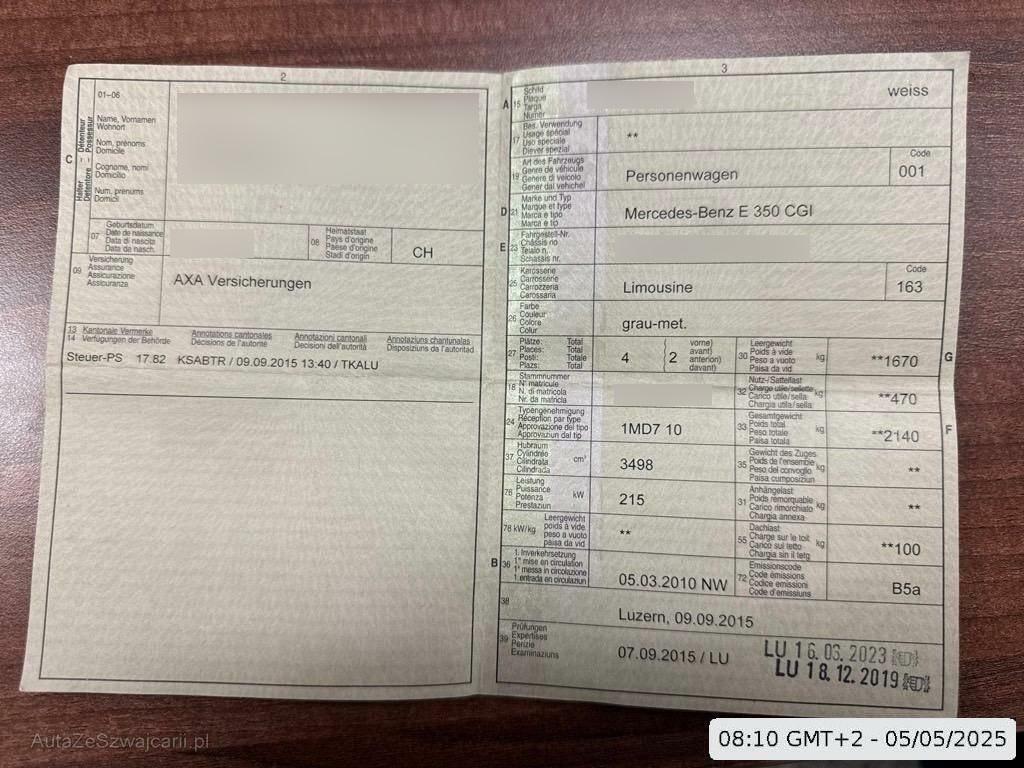 2
01–06
Name, Vornamen
Wohnort
Nom, prénoms
Domicile
Cognome, nomi
Domicilio
Num, prenums
Domicil
C
Halter Détenteur
Detentore Possessur
07
Geburtsdatum
Date de naissance
Data di nascita
Data da nasch.
08
Heimatstaat
Pays d'origine
Paese d'origine
Stadi d'origin
CH
09
Versicherung
Assurance
Assicurazione
Assicuranza
AXA Versicherungen
13 Kantonale Vermerke
14 Verfügungen der Behörde
Annotations cantonales
Décisions de l'autorité
Annotazioni cantonali
Decisioni dell'autorità
Annotaziuns chantunalas
Disposiziuns da l'autoritad
Steuer-PS 17.82 KSABTR / 09.09.2015 13:40 / TKALU
3
A 15
Schild
Plaque
Targa
Numer
weiss
17
Bes. Verwendung
Usage spécial
Uso speciale
Diever spezial
**
19
Art des Fahrzeugs
Genre de véhicule
Genere di veicolo
Gener dal vehichel
Personenwagen
Code
001
D 21
Marke und Typ
Marque et type
Marca e tipo
Marca e tip
Mercedes-Benz E 350 CGI
E 23
Fahrgestell-Nr.
Châssis no
Telaio n.
Schassis nr.
25
Karosserie
Carrosserie
Carrozzeria
Carossaria
Limousine
Code
163
26
Farbe
Couleur
Colore
Colur
grau-met.
27
Plätze: Total
Places: Total
Posti: Totale
Plazs: Total
4
2
vorne)
avant)
anteriori)
davant)
30
Leergewicht
Poids à vide
Peso a vuoto
Paisa da vid
kg
**1670
G
18
Stammnummer
N° matricule
N. di matricola
Nr. da matricla
32
Nutz-/Sattellast
Charge utile/sellette
Carico utile/sella
Chargia utila/sella
kg
**470
24
Typengenehmigung
Réception par type
Approvazione del tipo
Approvaziun dal tip
1MD7 10
33
Gesamtgewicht
Poids total
Peso totale
Paisa totala
kg
**2140
F
37
Hubraum
Cylindrée
Cilindrata
Cilindrada
cm³
3498
35
Gewicht des Zuges
Poids de l'ensemble
Peso del convoglio
Paisa cumposiziun
kg
**
76
Leistung
Puissance
Potenza
Prestaziun
kW
215
31
Anhängelast
Poids remorquable
Carico rimorchiato
Chargia annexa
kg
**
78 kW/kg
Leergewicht
poids à vide
peso a vuoto
paisa da vid
**
55
Dachlast
Charge sur le toit
Carico sul tetto
Chargia sin il tetg
kg
**100
B 36
1. Inverkehrsetzung
1re mise en circulation
1a messa in circolazione
1. entrada en circulaziun
05.03.2010 NW
72
Emissionscode
Code émissions
Codice emissioni
Code d'emissiuns
B5a
38
Luzern, 09.09.2015
39
Prüfungen
Expertises
Perizie
Examinaziuns
07.09.2015 / LU
LU 16. 03. 2023
LU 18. 12. 2019
AutaZeSzwajcarii.pl
08:10 GMT+2 - 05/05/2025